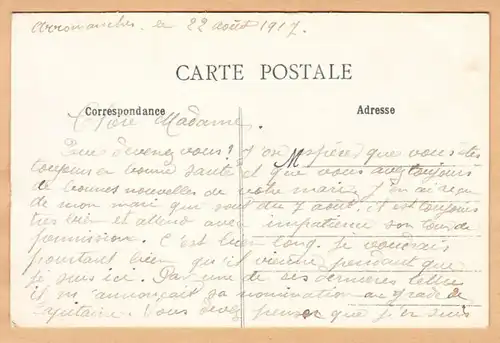 Arromanches, le 22 août 1917.
CARTE POSTALE
Correspondance
Adresse
Chère Madame,
Que devenez vous? J'ose espérer que vous êtes
toujours en bonne santé et que vous avez toujours
de bonnes nouvelles de votre mari. J'en ai reçu
de mon mari qui sont du 7 août. Il est toujours
très bien et attend avec impatience son tour de
permission. C'est bien long. Je voudrais
pourtant bien qu'il vienne pendant que
je suis ici. Par une de ses dernières lettres
il m'annonçait sa nomination au grade de
Capitaine. Vous devez penser que j'en suis